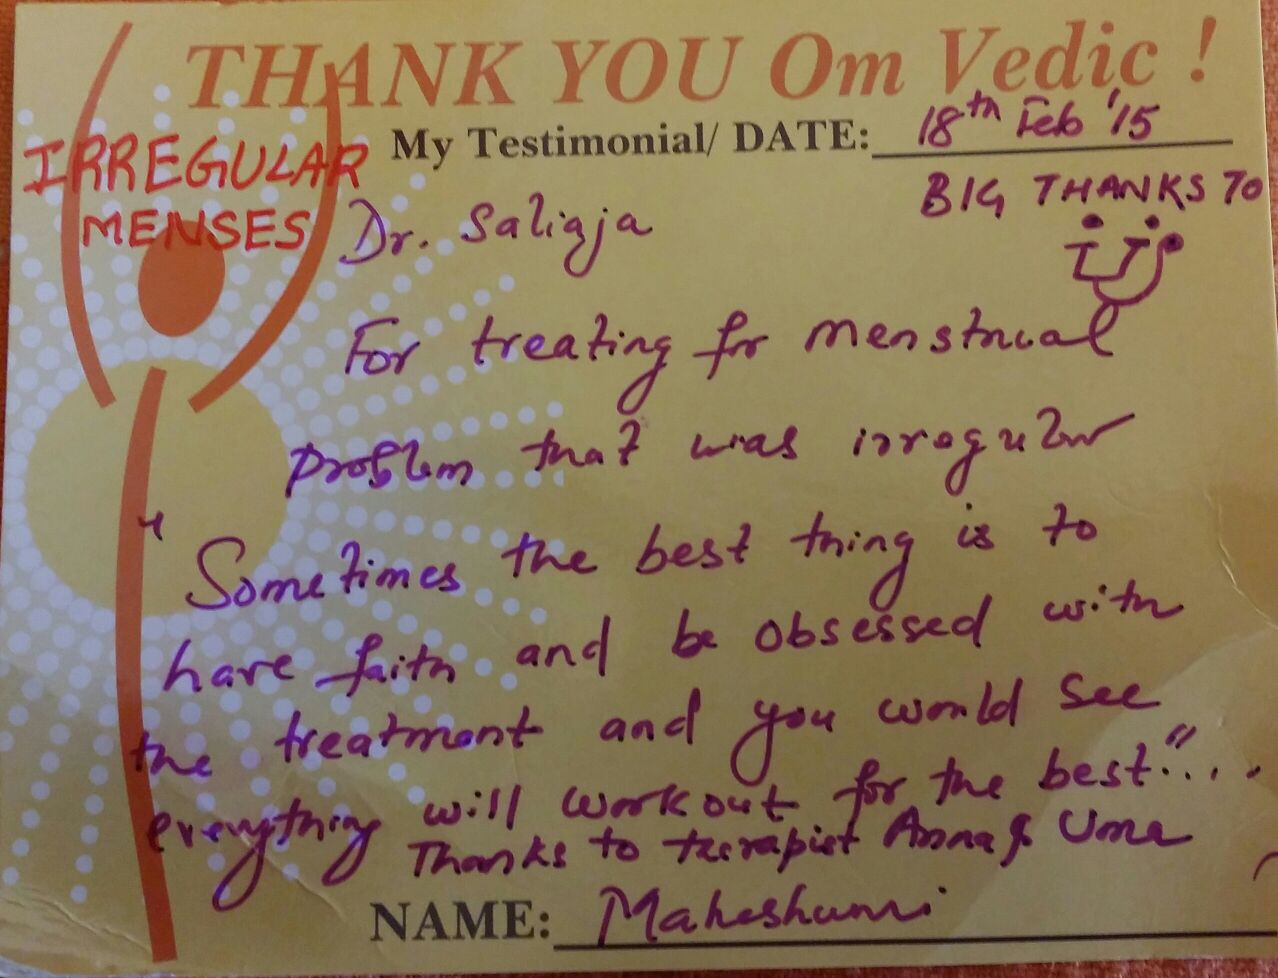 THANK YOU Om Vedic !
My Testimonial/ DATE: 18th Feb '15
IRREGULAR
MENSES
BIG THANKS TO
Dr. Saligja
For treating for menstrual
problem that was irregular
" Sometimes the best thing is to
have faith and be obsessed with
the treatment and you would see
everything will workout for the best"....
Thanks to therapist & Uma
NAME: